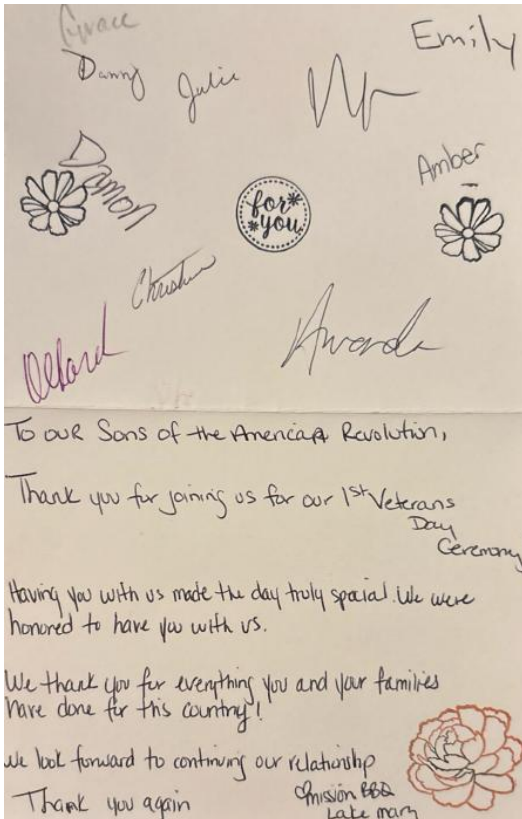 Grace
Emily
Danny
Julie
Damon
Amber
for
you
Christine
Amanda
To our Sons of the American Revolution,
Thank you for joining us for our 1st Veterans
Day
Ceremony
Having you with us made the day truly special. We were
honored to have you with us.
We thank you for everything you and your families
have done for this country!
We look forward to continuing our relationship
Thank you again
Mission BBQ
Lake Mary